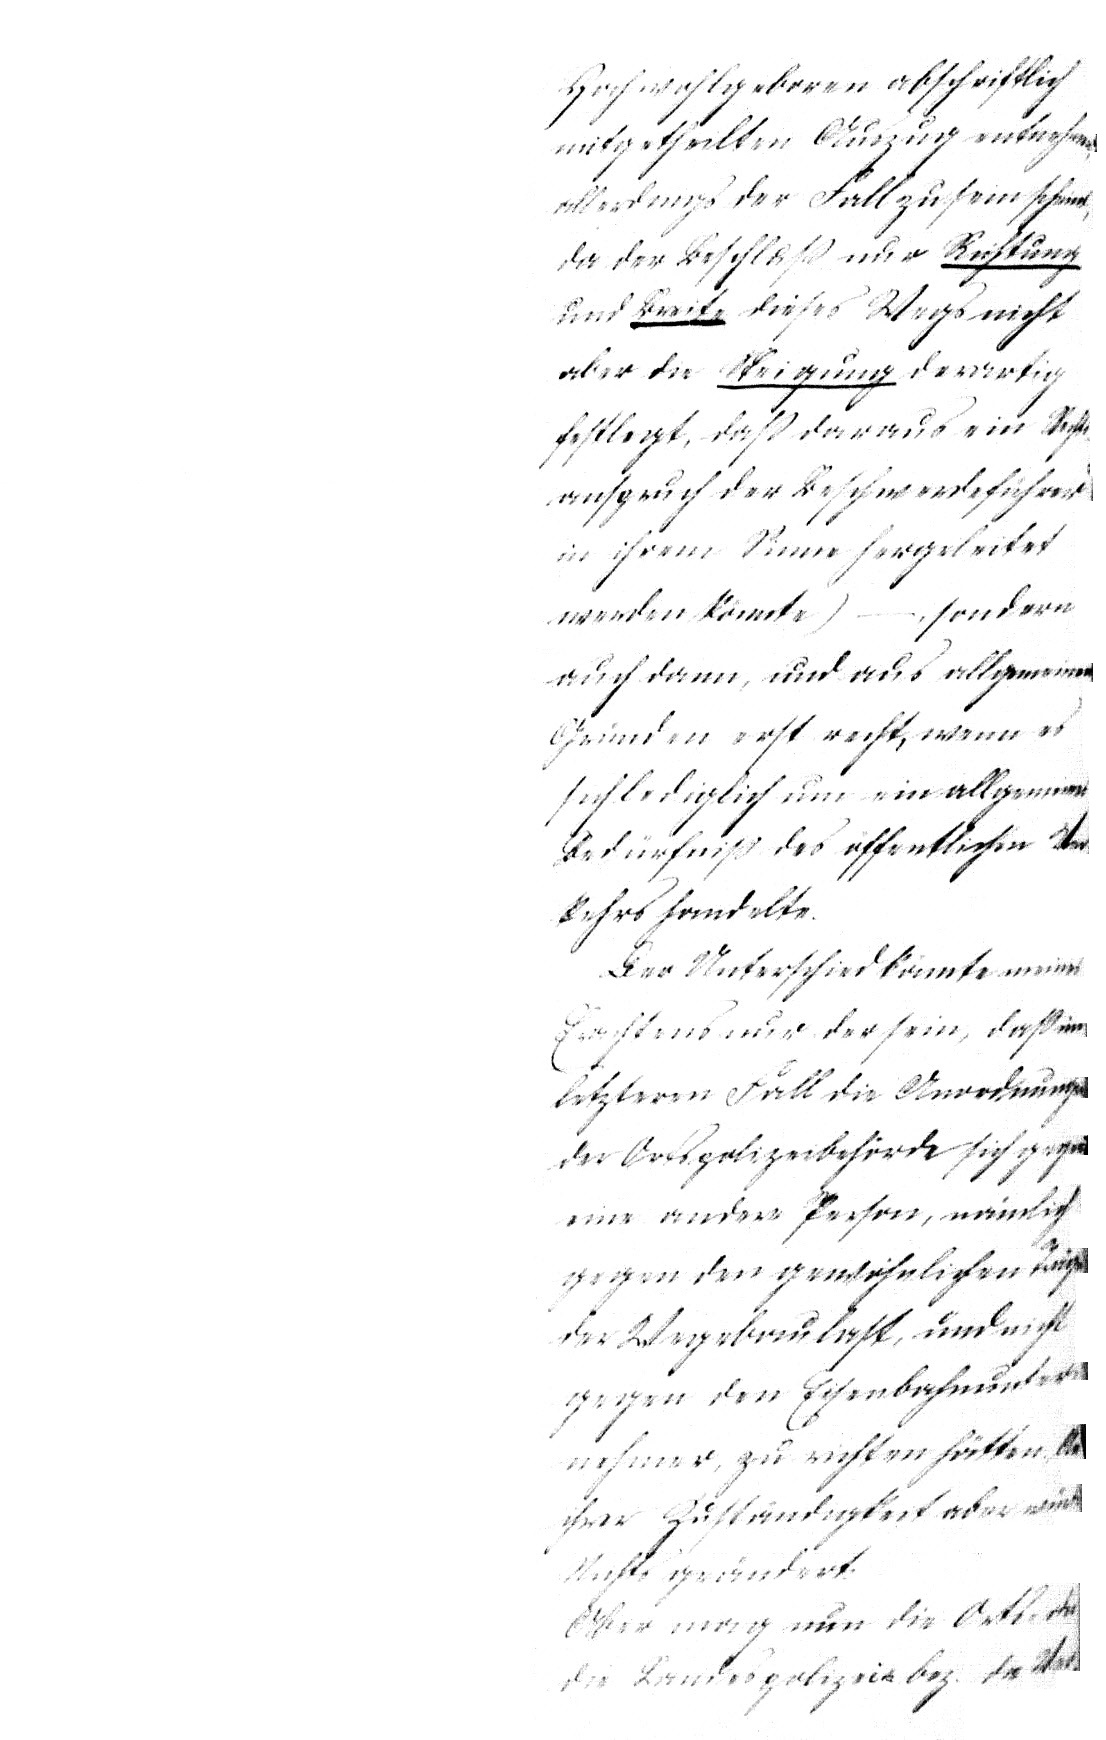 Hochwohlgeboren abschriftlich
mitgetheilten Auszug entnehme,
allerdings der Fall zu sein scheint,
da der Beschluß nur Richtung
und Breite dieses Wegs nicht
aber die Steigung derartig
festlegt, daß daraus ein Rechts
anspruch der Beschwerdeführer
in ihrem Sinne hergeleitet
werden könnte) —, sondern
auch dann, und aus allgemeinen
Gründen erst recht, wenn es
sich lediglich um ein allgemeines
Bedürfniß des öffentlichen Ver
kehrs handelte.
Der Unterschied könnte meines
Erachtens nur der sein, daß im
letzteren Fall die Anordnungen
der Ortspolizeibehörde sich gegen
eine andere Person, nämlich
gegen den gewöhnlichen Träger
der Wegebaulast, und nicht
gegen den Eisenbahnunter
nehmer, zu richten hätten. An
ihrer Zuständigkeit aber würde
Nichts geändert.
Aber mag nun die Orts- oder
die Landespolizei bez. die